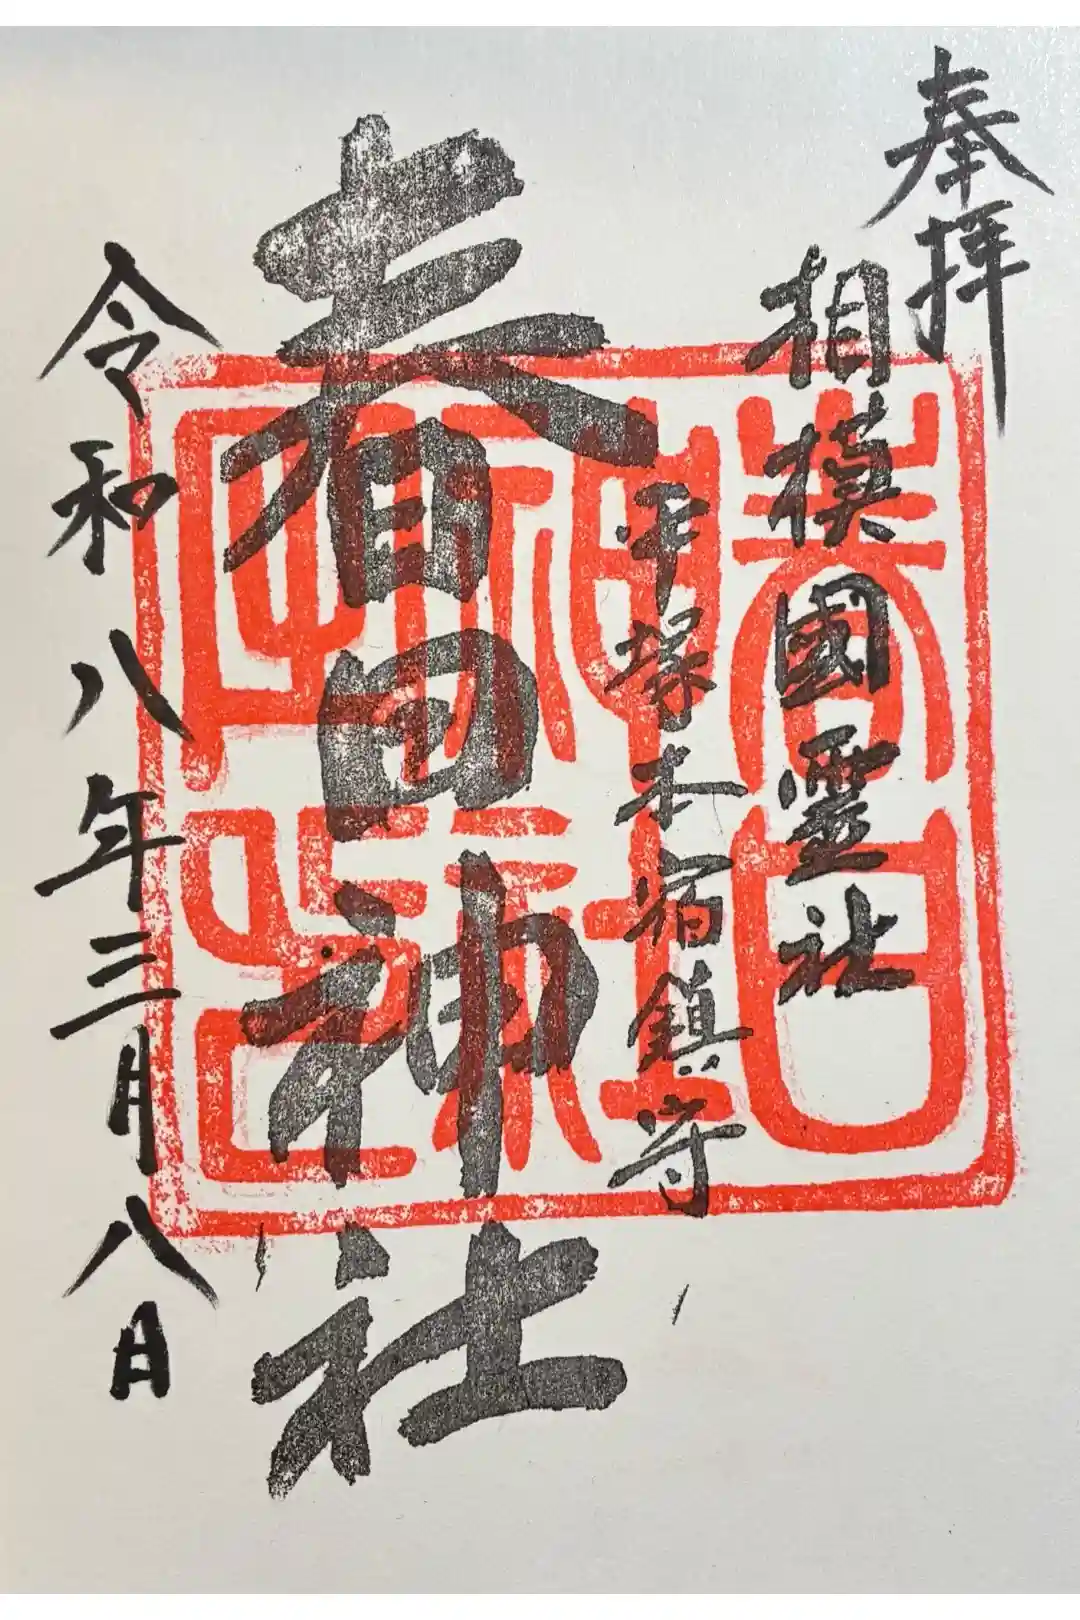 奉拝
相模國霊社
平塚本宿鎮守
春日神社
令和八年三月八日